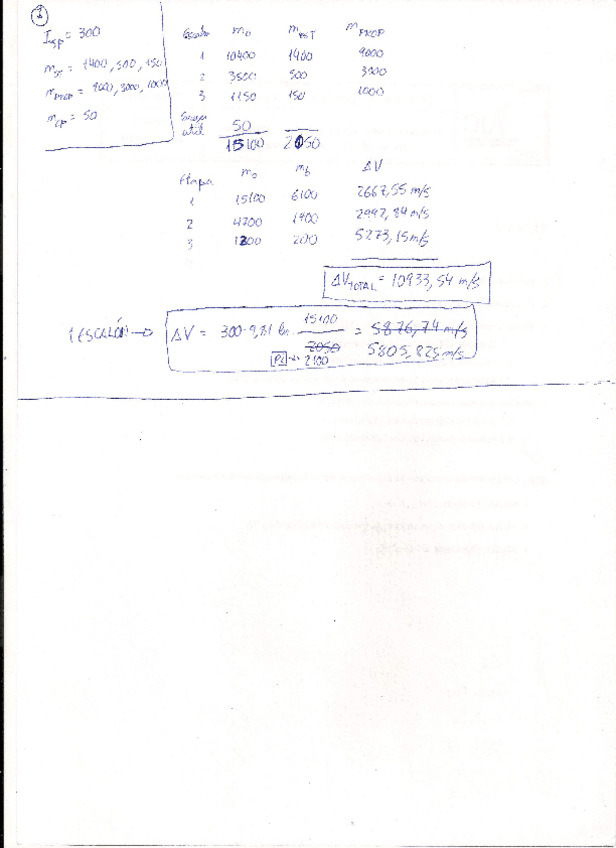 1
Isp = 300
mST = 1400, 500, 150
mPROP = 9000, 3000, 1000
mCP = 50
m0 mEST mPROP
1 10400 1400 9000
2 3500 500 3000
3 1150 150 1000
útil 50
15100 2050
Etapa m0 mb ΔV
1 15100 6100 2667,55 m/s
2 4700 1700 2992,84 m/s
3 1200 200 5273,15 m/s
ΔVTOTAL = 10933,54 m/s
1 ESCALÓN → ΔV = 300·9,81 ln 15100 / 2050 = 5876,74 m/s
PL → 2100 5805,825 m/s